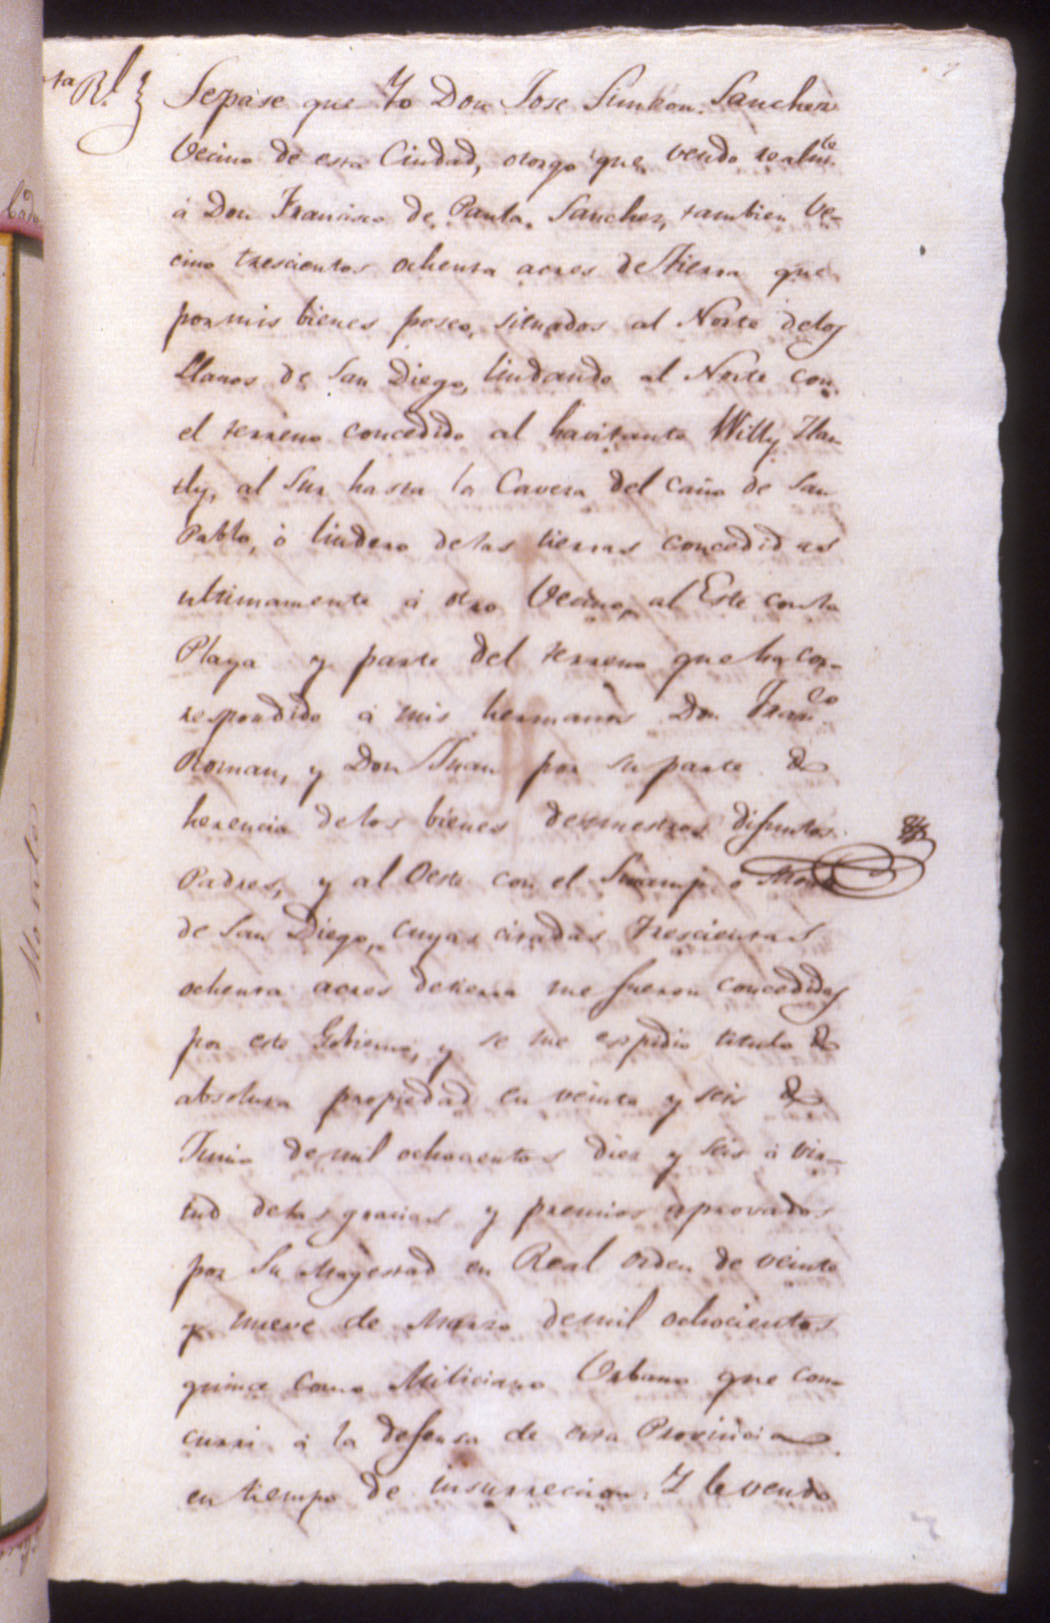 ta Rl.
Sepase que Yo Don Jose Simeon Sanchez
Vecino de esta Ciudad, otorgo que vendo realmte
á Don Francisco de Paula Sanchez, tambien Ve-
cino trescientos ochenta acres de tierra que
por mis bienes poseo, situados al Norte delos
Llanos de San Diego, lindando al Norte con
el terreno concedido al havitante Willy
al Sur hasta la Cavera del caño de San
Pablo, ó lindero delas tierras concedidas
ultimamente á otro Vecino, al Este conla
Playa y parte del terreno que ha cor-
respondido á mis hermanos Don Franco
Roman, y Don Juan por su parte de
herencia delos bienes denuestros difuntos
Padres, y al Oeste con el Swamp ó Monte
de San Diego, cuyas citadas trescientas
ochenta acres detierra me fueron concedidas
por este Gobierno, y se me espidio titulo de
absoluta propiedad en veinte y seis de
Junio demil ochocientos diez y seis á vir-
tud delas gracias y premios aprovados
por Su Magestad en Real orden de veinte
y nueve de Marzo demil ochocientos
quince como Miliciano Urbano que con-
curri á la defensa de esta Provincia
en tiempo de insurreccion. Y le vendo